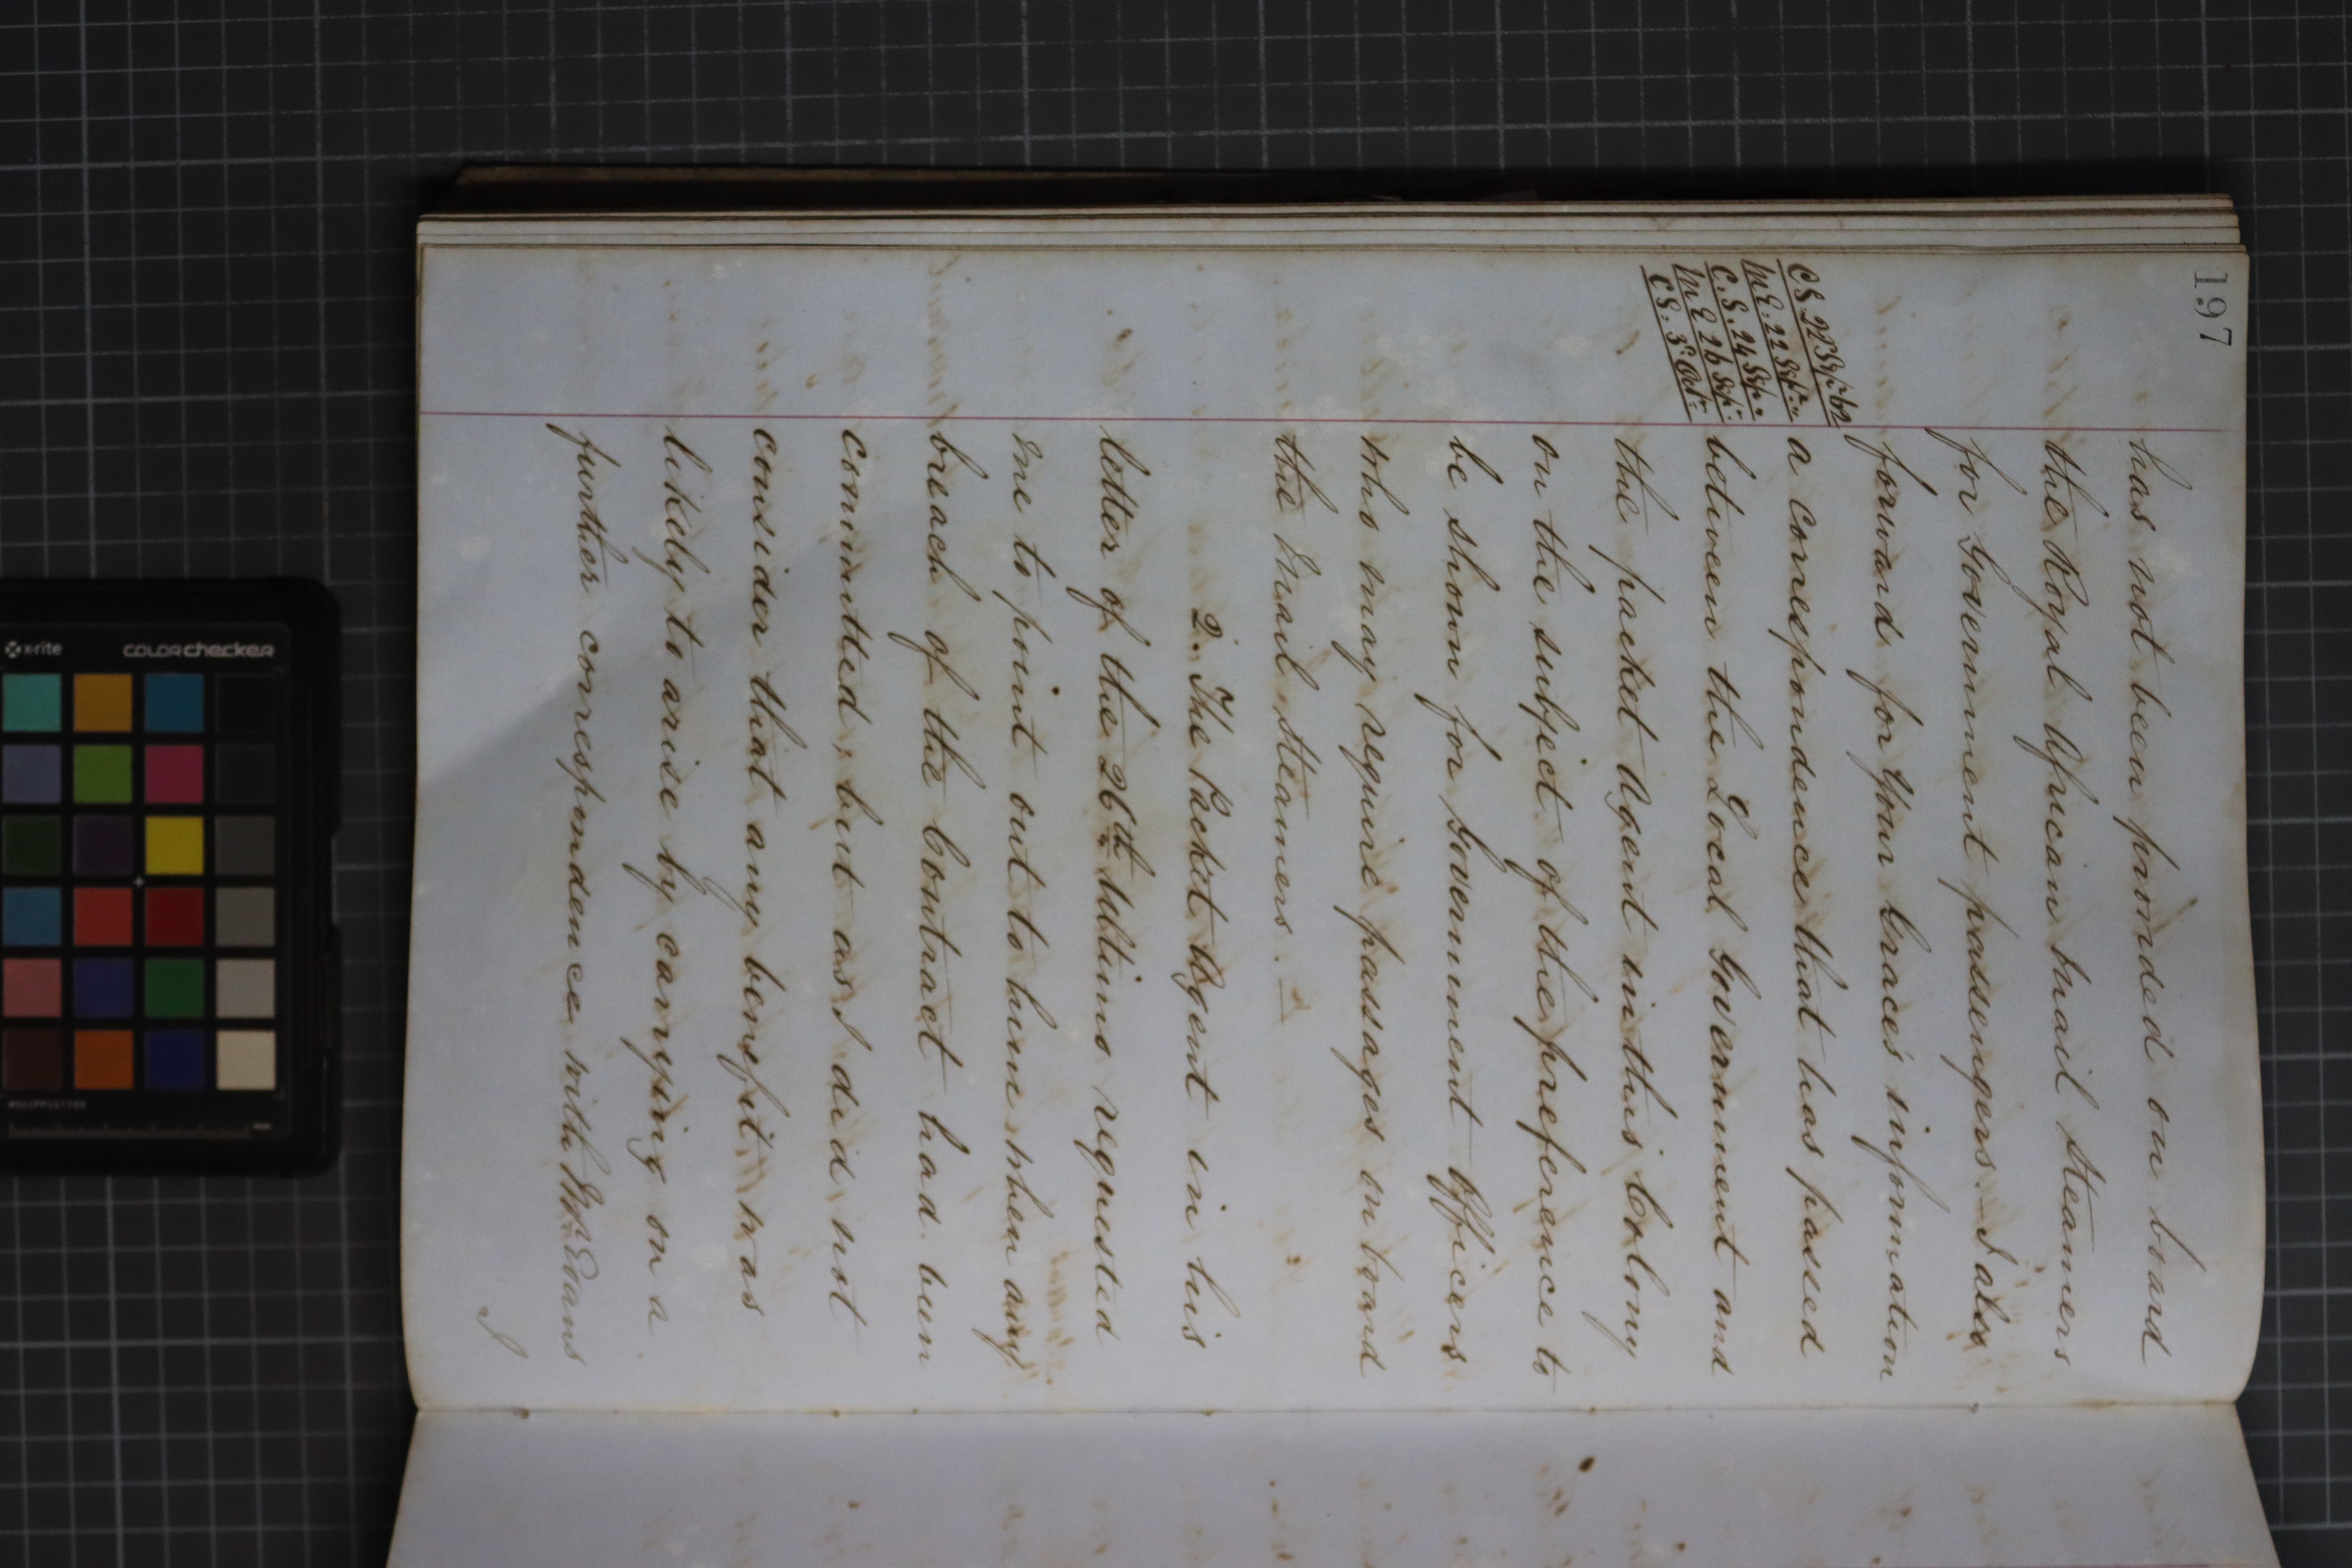 197
has not been provided on board
the Royal African Mail Steamers
for Government passengers - I also
forward for Your Grace's information
a correspondence that has passed
between the Local Government and
the packet Agent in this Colony
on the subject of the preference to
be shown for Government Officers
who may require passages on board
the Mail Steamers. —
C.S. 24 Sep.
M E 26 Sep.
C S. 3 Oct.
2. The Packet Agent in his
letter of the 26th Ultimo requested
me to point out to him when any
breach of the Contract had been
committed, but as I did not
consider that any benefit was
likely to arise by carrying on a
further correspondence with Mr. Evans
I
x-rite
colorchecker